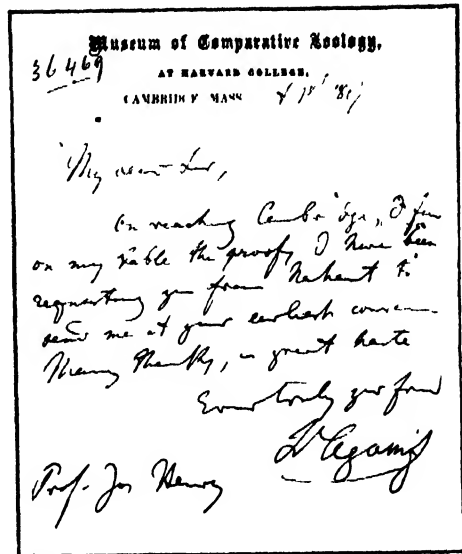 Museum of Comparative Zoology,
36469
AT HARVARD COLLEGE,
CAMBRIDGE MASS
My dear Sir,
On reaching Cambridge, I find
on my table the proofs, I have been
requesting you from Nahant to
send me at your earliest
Many thanks, in great haste
truly your friend
Ls Agassiz
Prof. Jos Henry